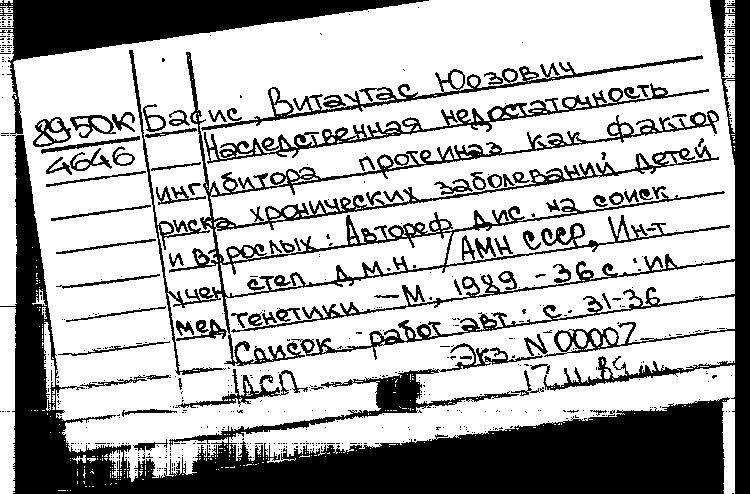 89-50К Басис, Витаутас Юозович
4646 Наследственная недостаточность
ингибитора протеиназ как фактор
риска хронических заболеваний детей
и взрослых : Автореф. дис. на соиск.
учен. степ. д.м.н. / АМН СССР, Ин-т
мед. генетики. - М., 1989. - 36 с. : ил
Список работ авт.: с. 31-36
ДСП Экз. N 00007
17.11.89